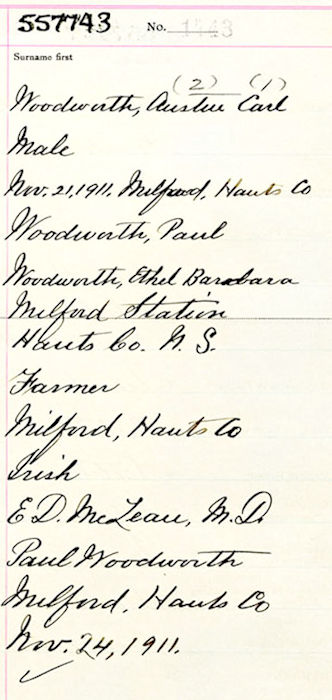 557743 No. 1143
Surname first
(2) (1)
Woodworth, Austin Carl
Male
Nov. 21, 1911. Milford, Hants Co
Woodworth, Paul
Woodworth, Ethel Barabara
Milford Station
Hants Co. N. S.
Farmer
Milford, Hants Co
Irish
E D. McLean, M.D.
Paul Woodworth
Milford, Hants Co
Nov. 24, 1911.
✓